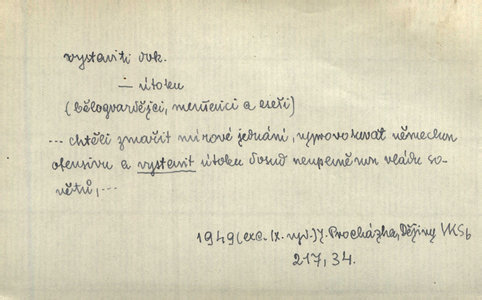 vystaviti dok.
– útoku
(bělogvardějci, menševici a eseři)
... chtěli zmařit mírové jednání, vyprovokovat německou
ofensivu a vystavit útoku dosud neupevněnou vládu so-
větů, ...
1949 (exc. z 1. vyd.) J. Procházka, Dějiny VKSb
217, 34.